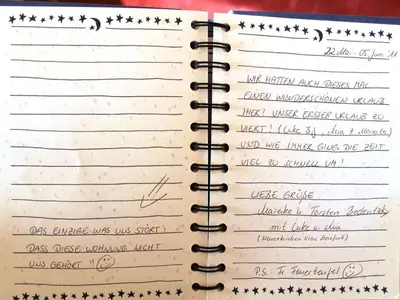 DAS EINZIGE WAS UNS STÖRT:
DASS DIESE WOHNUNG NICHT
UNS GEHÖRT"
22 Mai - 05 Jun
WIR HATTEN AUCH DIESES MAL
EINEN WUNDERSCHÖNEN URLAUB
HIER! UNSER ERSTER URLAUB ZU
VIERT! (Luke 3J, Mia
UND WIE IMMER GING DIE ZEIT
VIEL ZU SCHNELL UM!
LIEBE GRÜßE
Mareike u. Torsten
mit Luke u. Mia
P.S. Feuerteufel